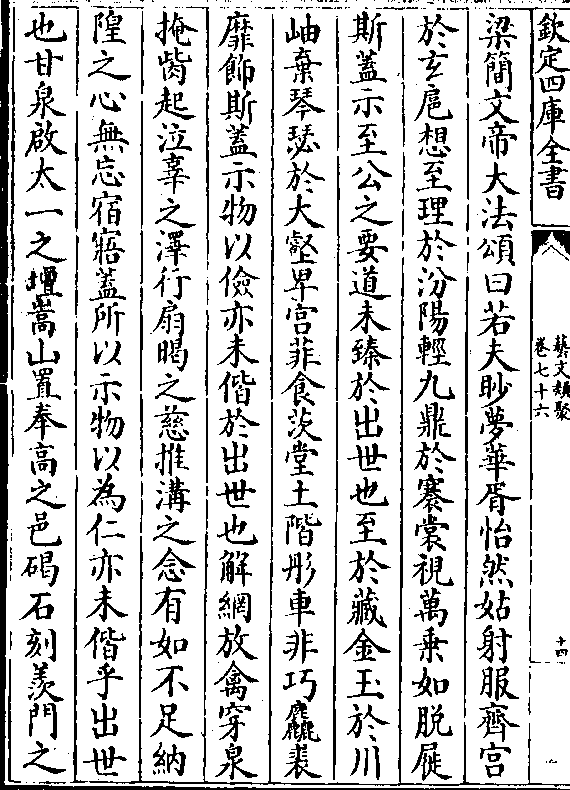 欽定四庫全書
藝文類聚
卷七十六
十四
梁簡文帝大法頌曰若夫眇夢華胥怡然姑射服齊宮
於玄扈想至理於汾陽輕九鼎於褰裳視萬乗如脱屣
斯蓋示至公之要道未臻於出世也至於藏金玉於川
岫棄琴瑟於大壑卑宫菲食茨堂土階彤車非巧麤裘
靡飾斯蓋示物以儉亦未偕於出世也解網放禽穿泉
掩胔起泣辜之澤行扇暍之慈推溝之念有如不足納
隍之心無忘宿寤蓋所以示物以為仁亦未偕乎出世
也甘泉啟太一之壇嵩山置奉高之邑碣石刻羡門之